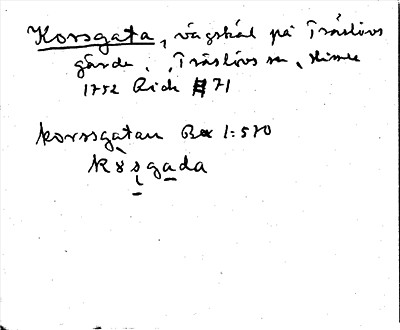 Korsgata, vägskäl på Träslövs
gärde, Träslövs sn, Himle
1752 Rick #71
korssgatan Bex 1:570
kȣsgada